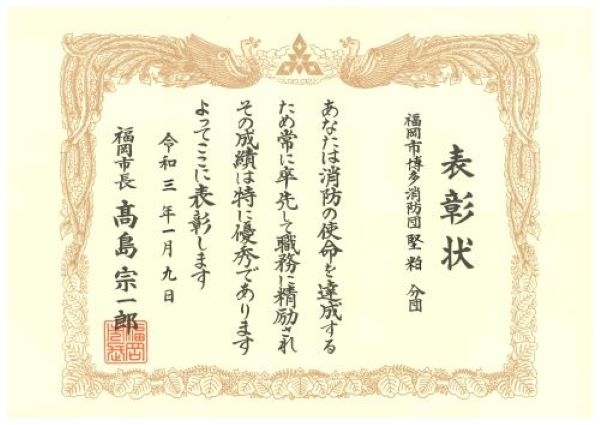 表彰状
福岡市博多消防団 堅粕 分団
あなたは消防の使命を達成する
ため常に卒先して職務に精励され
その成績は特に優秀であります
よってここに表彰します
令和三年一月九日
福岡市長 髙島宗一郎